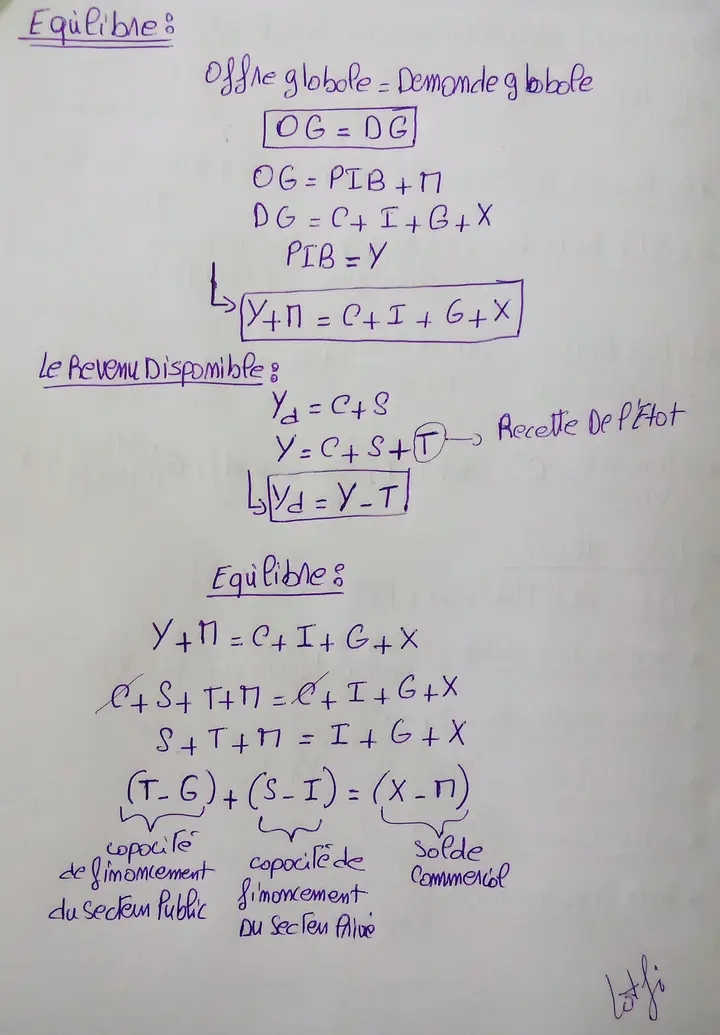 Equilibre :
Offre globale = Demande globale
OG = DG
OG = PIB + M
DG = C + I + G + X
PIB = Y
↳ Y + M = C + I + G + X
Le Revenu Disponible :
Yd = C + S
Y = C + S + T → Recette De l'Etat
↳ Yd = Y - T
Equilibre :
Y + M = C + I + G + X
C + S + T + M = C + I + G + X
S + T + M = I + G + X
(T - G) + (S - I) = (X - M)
capacité de financement du secteur Public
capacité de financement Du Secteur Privé
Solde Commercial
Lotfi